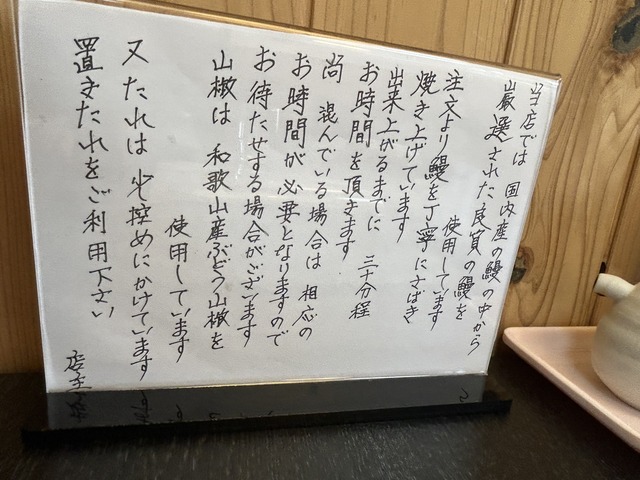 当店では 国内産の鰻の中から
厳選された良質の鰻を
使用しています
注文より鰻を丁寧にさばき
焼き上げています
出来上がるまでに 三十分程
お時間を頂きます
尚 混んでいる場合は 相応の
お時間が必要となりますので
お待たせする場合がございます
山椒は 和歌山産ぶどう山椒を
使用しています
又 たれは 少控めにかけています
置きたれをご利用下さい
店主